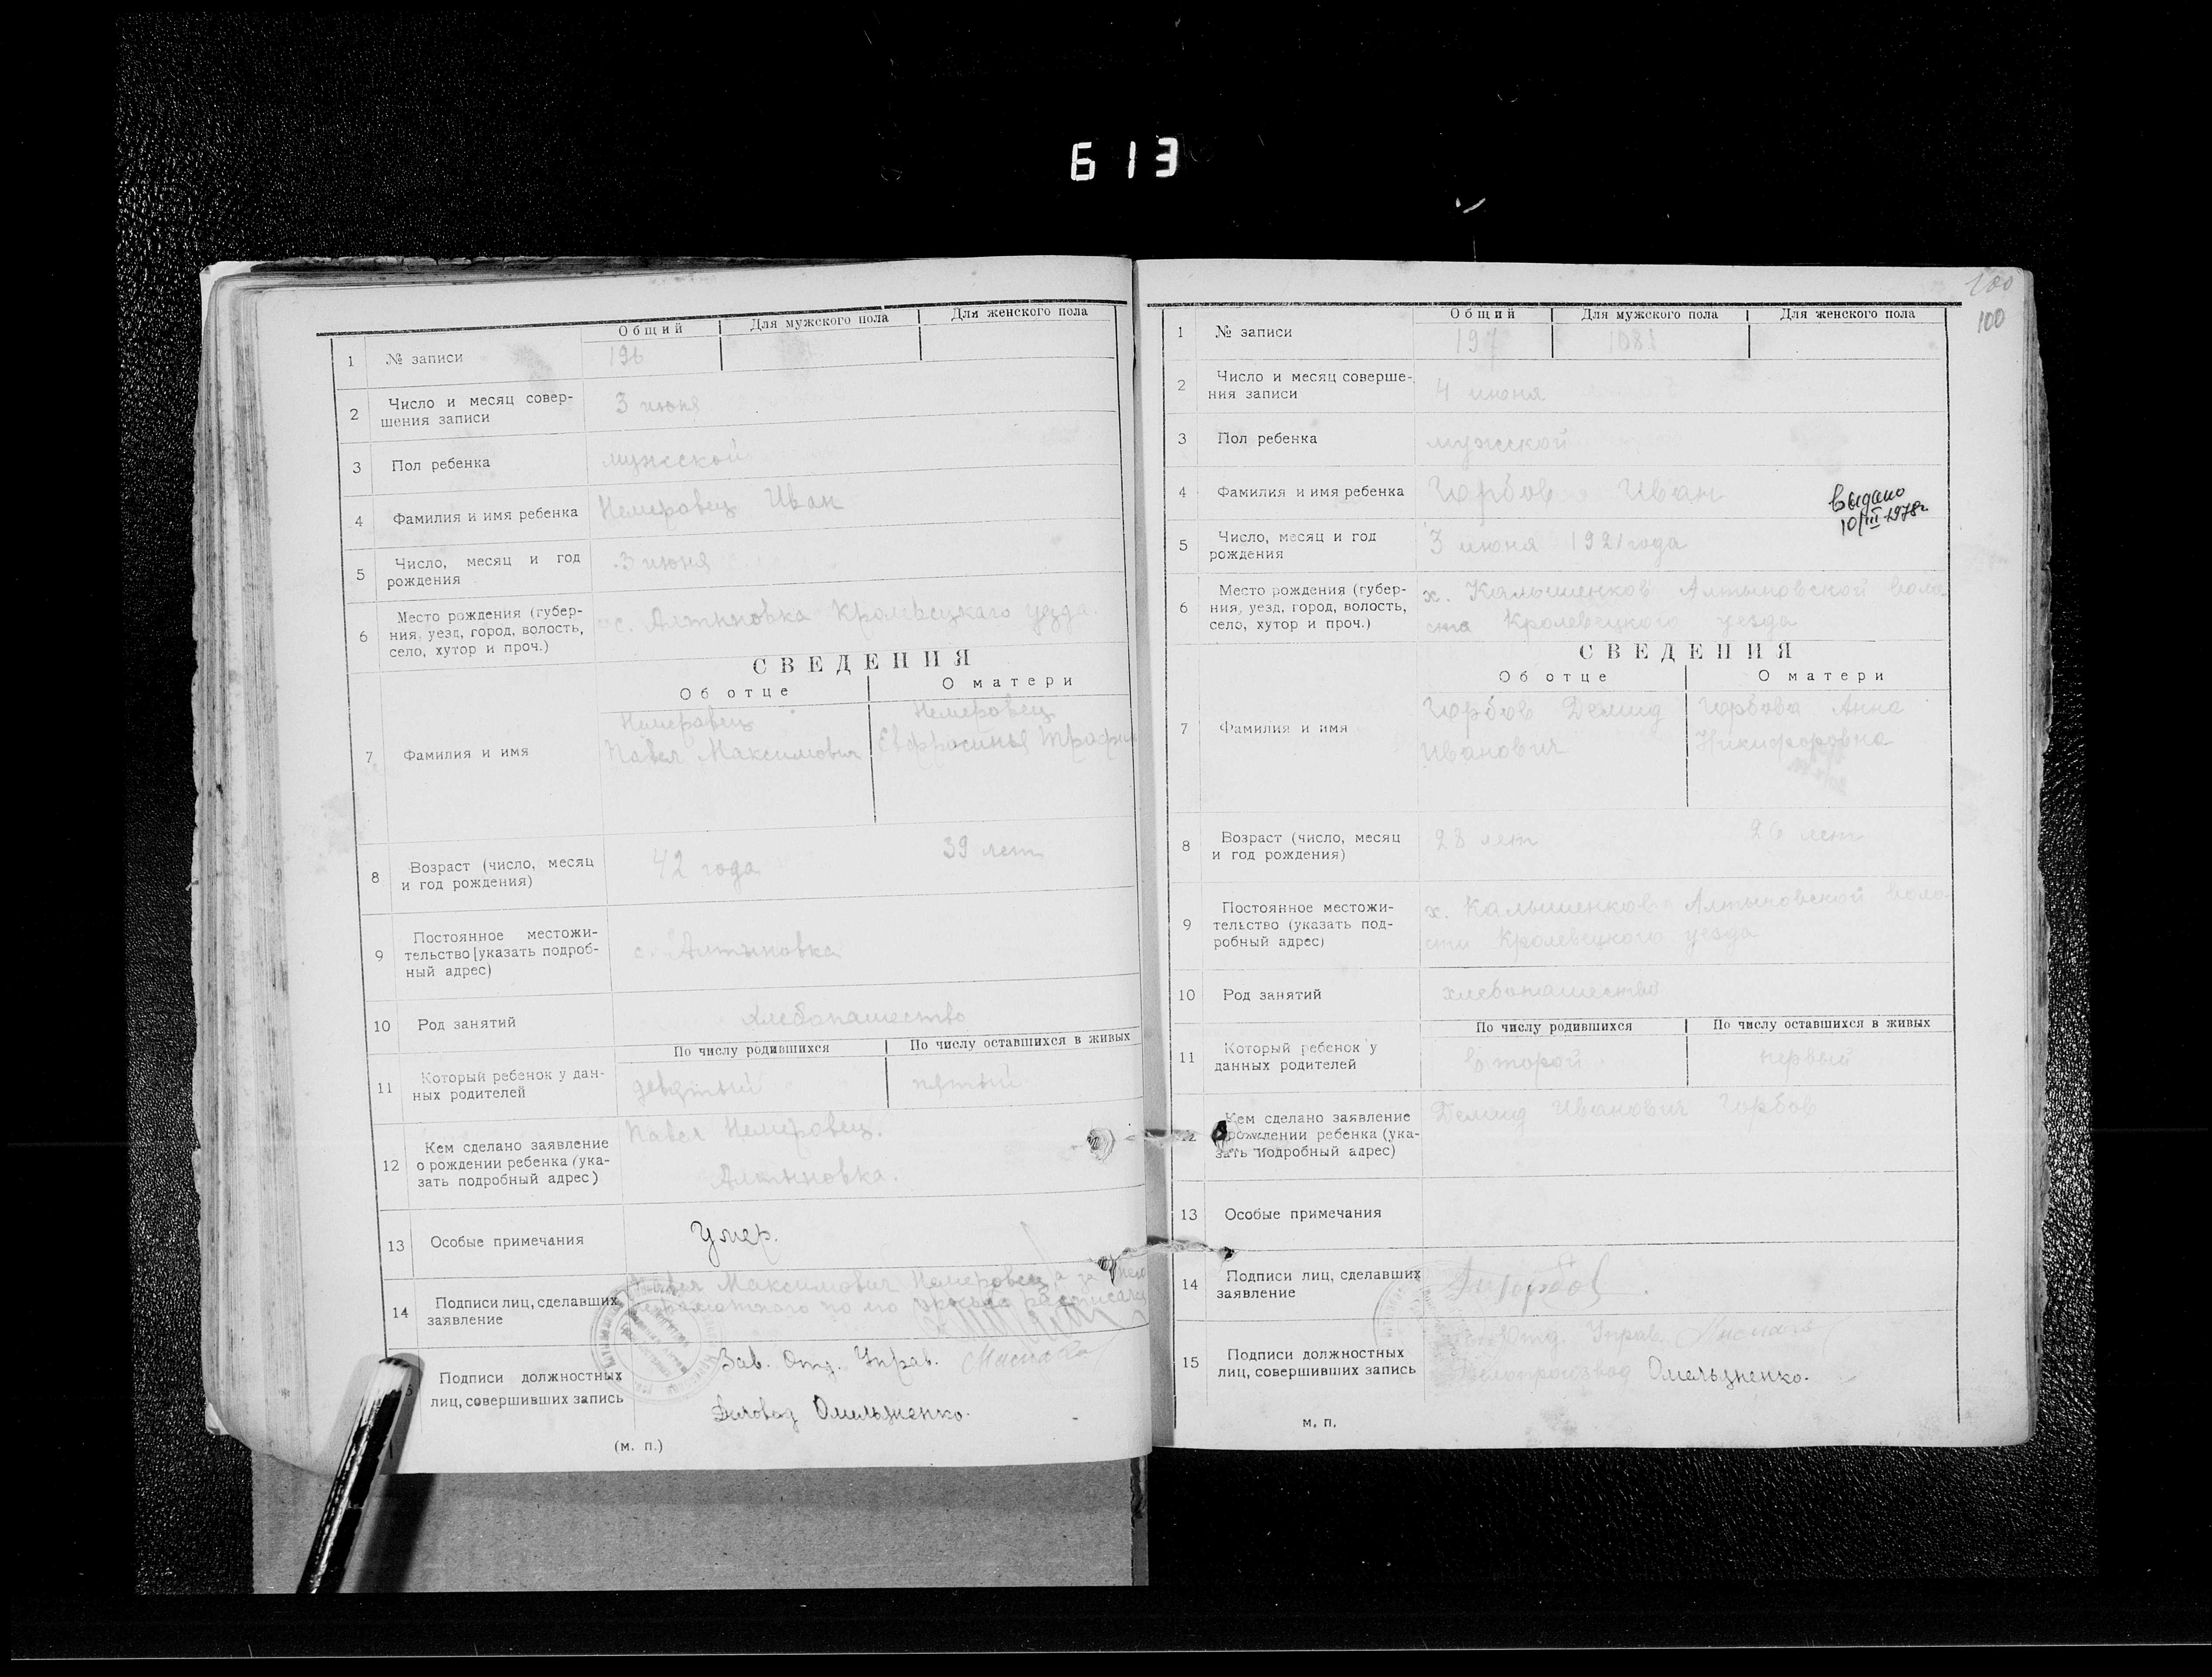 613
Общий Для мужского пола Для женского пола
1 № записи 196
2 Число и месяц совер-
шения записи 3 июня
3 Пол ребенка мужской
4 Фамилия и имя ребенка Немеровец Иван
5 Число, месяц и год
рождения 3 июня
6 Место рождения (губер-
ния, уезд, город, волость,
село, хутор и проч.) с. Алтыновка Кролевецкаго уезда.
СВЕДЕНИЯ
Об отце О матери
7 Фамилия и имя
Немеровец Немеровец
Павел Максимович Евфросинья
8 Возраст (число, месяц
и год рождения) 42 года 39 лет
9 Постоянное местожи-
тельство [указать подроб-
ный адрес) с. Алтыновка
10 Род занятий хлебопашество
По числу родившихся По числу оставшихся в живых
11 Который ребенок у дан-
ных родителей девятый пятый
12 Кем сделано заявление
о рождении ребенка (ука-
зать подробный адрес) Павел Немеровец.
Алтыновка.
13 Особые примечания Умер.
14 Подписи лиц, сделавших
заявление Павел Максимович Немеровец, а за него
неграмотного по его просьбе
Подписи должностных
лиц, совершивших запись
Зав. Отд. Управ.
Деловод Омельченко.
(м. п.)
100
100
Общий Для мужского пола Для женского пола
1 № записи 197 108
2 Число и месяц соверше-
ния записи 4 июня
3 Пол ребенка мужской
4 Фамилия и имя ребенка Горбов Иван
выдано
10/III-1978г
5 Число, месяц и год
рождения 3 июня 1921 года
6 Место рождения (губер-
ния, уезд, город, волость,
село, хутор и проч.) х. Калышенков Алтыновской воло
сти Кролевецкого уезда
СВЕДЕНИЯ
Об отце О матери
7 Фамилия и имя
Горбов Демид Горбова Анна
Иванович Никифоровна
8 Возраст (число, месяц
и год рождения) 28 лет 26 лет
9 Постоянное местожи-
тельство (указать под-
робный адрес) х. Калышенков Алтыновской воло-
сти Кролевецкого уезда
10 Род занятий хлебопашество
По числу родившихся По числу оставшихся в живых
11 Который ребенок у
данных родителей второй первый
Кем сделано заявление
рождении ребенка (ука-
зать подробный адрес) Демид Иванович Горбов
13 Особые примечания
14 Подписи лиц, сделавших
заявление Горбов
15 Подписи должностных
лиц, совершивших запись
Отд. Управ.
Делопроизвод Омельченко.
м. п.